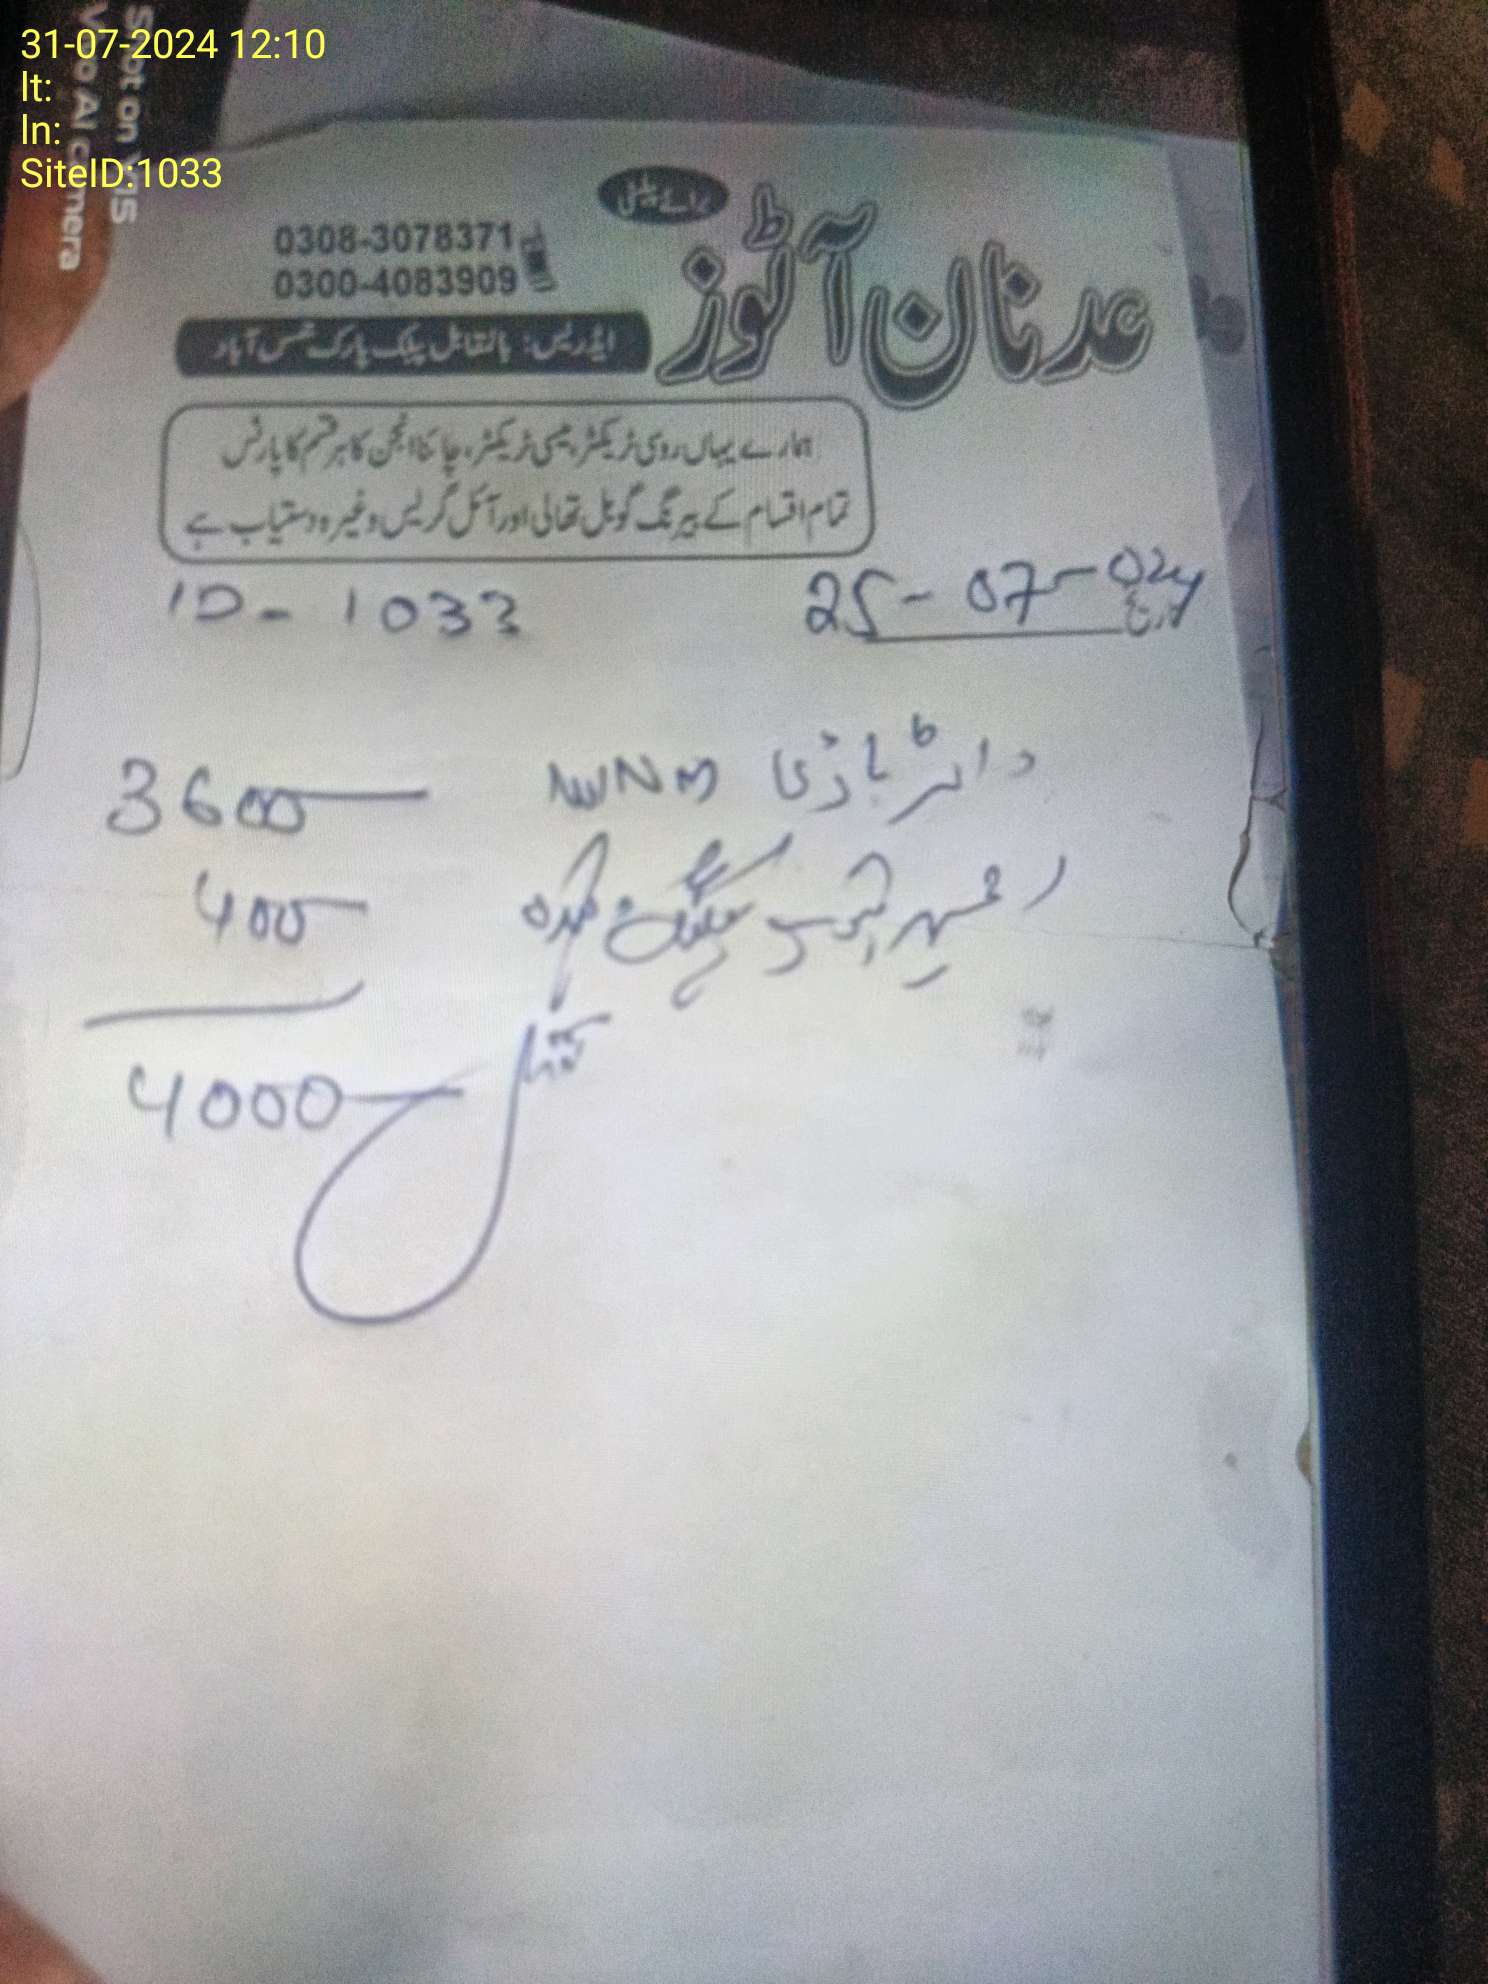 31-07-2024 12:10
lt:
ln:
SiteID:1033
Spot on
Vivo AI camera
عدنان آٹوز
0308-3078371
0300-4083909
ایڈریس: بالمقابل پبلک پارک شمس آباد
ہمارے یہاں روسی ٹریکٹر، میسی ٹریکٹر، چائنا انجن کا ہر قسم کا پارٹس
تمام اقسام کے بیرنگ گوبل تھالی اور آئل گریس وغیرہ دستیاب ہے
ID - 1033
25-07-024
تاریخ
باڈی WNM 3600
400
4000